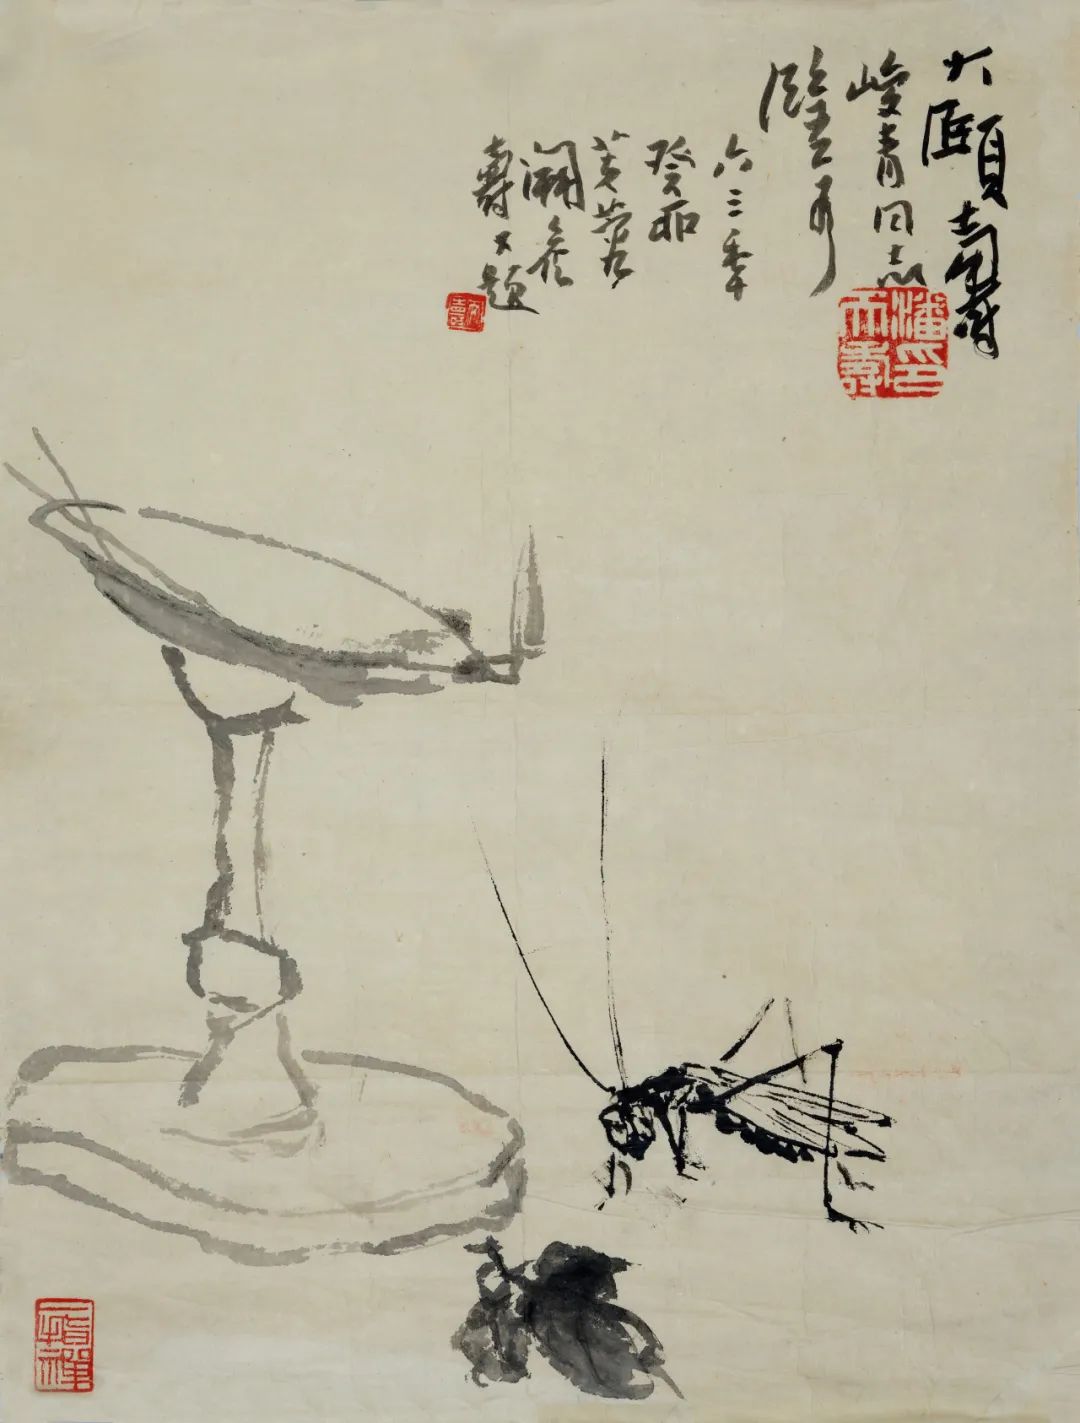 大頤壽
峻青同志
鑒可
六三年
癸卯
芙蓉
壽又題
潘天壽印
阿壽
一指禪